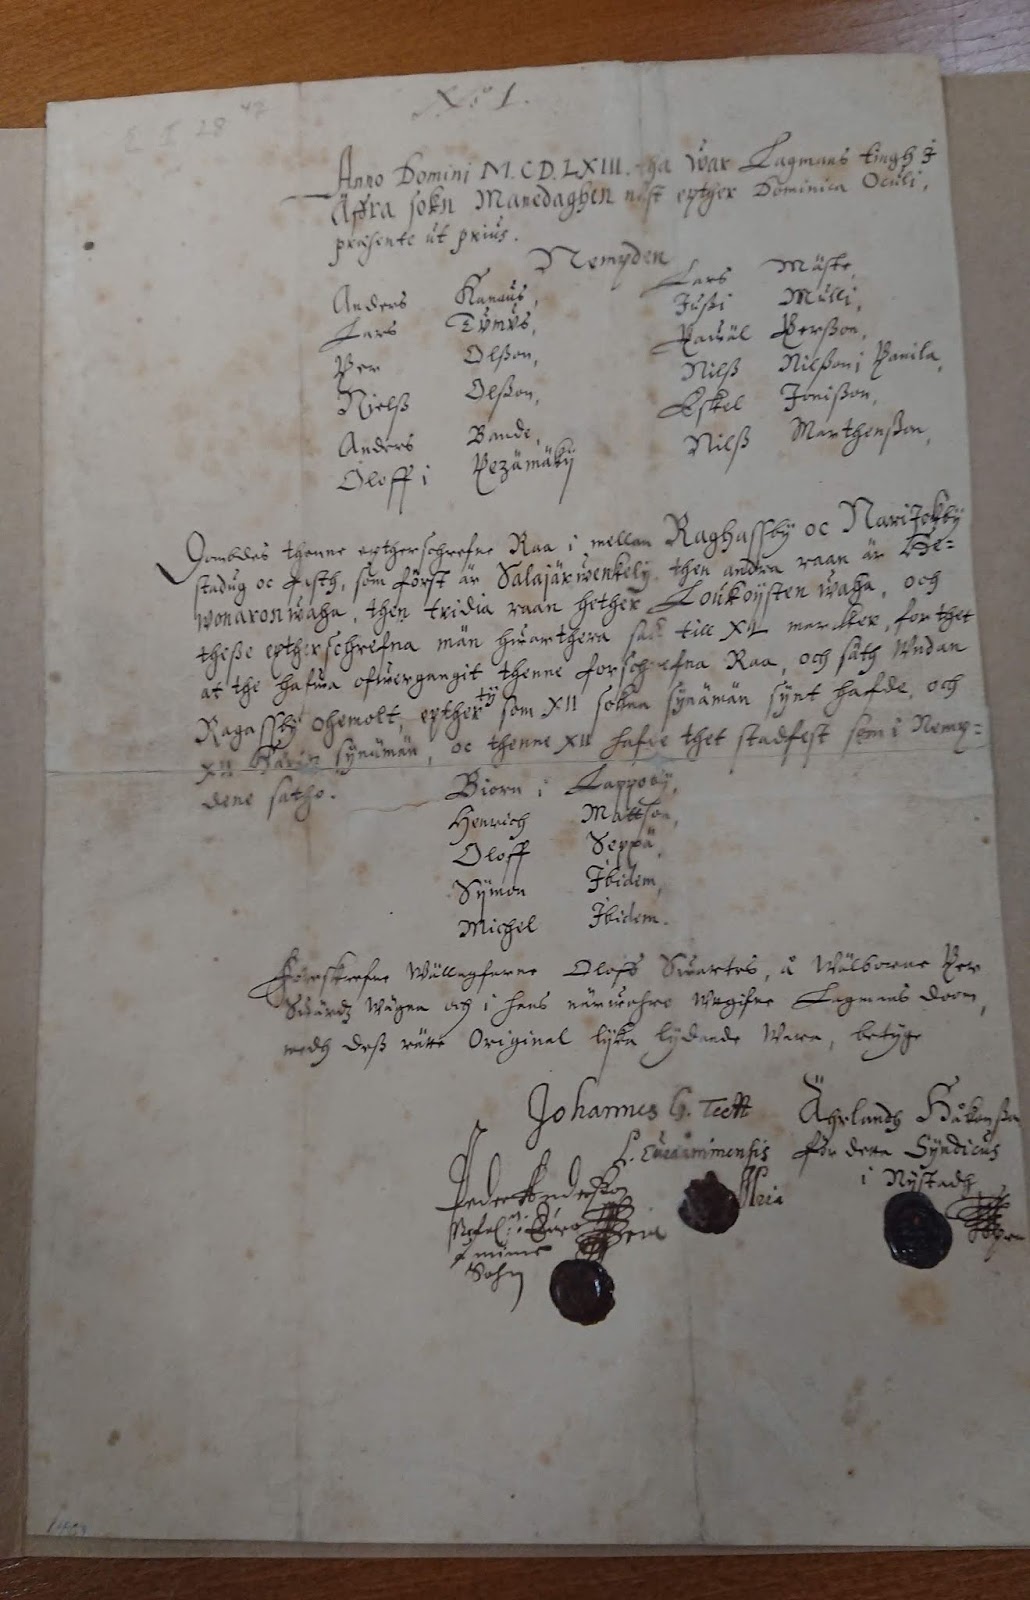 E I 28 47
No 1.
Anno Domini M.CD.LXIII. tha war Lagmans tingh I
sokn Manedaghen nest epther Dominica Oculi,
præsente ut prius.
Nemyden
Anders Kanaus, Lars Mäske,
Lars Tumus, Jussi Mulli,
Per Olßon, Pauual Perßon,
Nielß Olßon, Nilß Nilßon i Panila,
Anders Bande, Eskel Jonißon,
Oloff i Pezämäky Nilß Marthenßon,
Dombdes thenne eptherschrefne Raa i mellan Raghassby oc Narijokby
stadug oc fasth, som först är Salajärwenkely, then andra raan är He=
wonaronwaha, then tridia raan hether Loukoysten waha, och
theße eptherschrefna män huarthera sak till XL marcker, for thet
at the hafwa ofwergangit thenne forschrefna Raa, och sath Vndan
Ragassby ohemolt, epther ty som XII sokna synämän synt hafde, och
XII synämän, oc thenne XII hafue thet stadfest som i Nemp=
dene satho.
Biorn i Lappoby,
Henrich Mattson,
Oloff Seppä,
Symon Ibidem,
Michel Ibidem.
Förskrefne Wällagfarne Oloff Swartes, å Wälborne Per
Swärdz Wägna och i hans närwahro Vtgifne Lagmans doom,
medh deß rätte Original lyka lydande Wara, betyge
Johannes G. Teett Ährlandh Håkonßon
för dera Syndicus
i Nystadh
Peder Anderßon